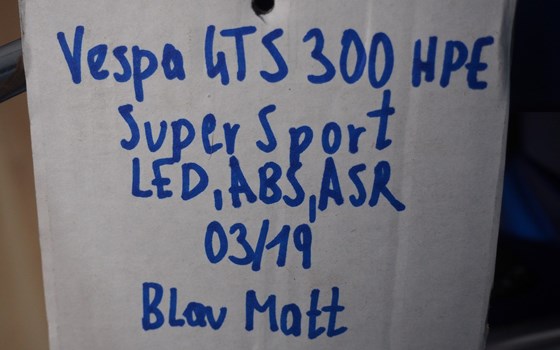 Vespa GTS 300 HPE
Super Sport
LED, ABS, ASR
03/19
Blau Matt